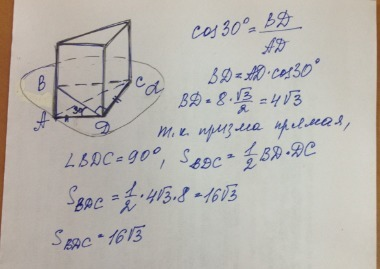 cos30° = BD/AD
B C α
30°
A D
BD = AD · cos30°
BD = 8 · √3/2 = 4√3
т.к. призма прямая,
∠BDC = 90°, S_BDC = 1/2 BD · DC
S_BDC = 1/2 · 4√3 · 8 = 16√3
S_BDC = 16√3